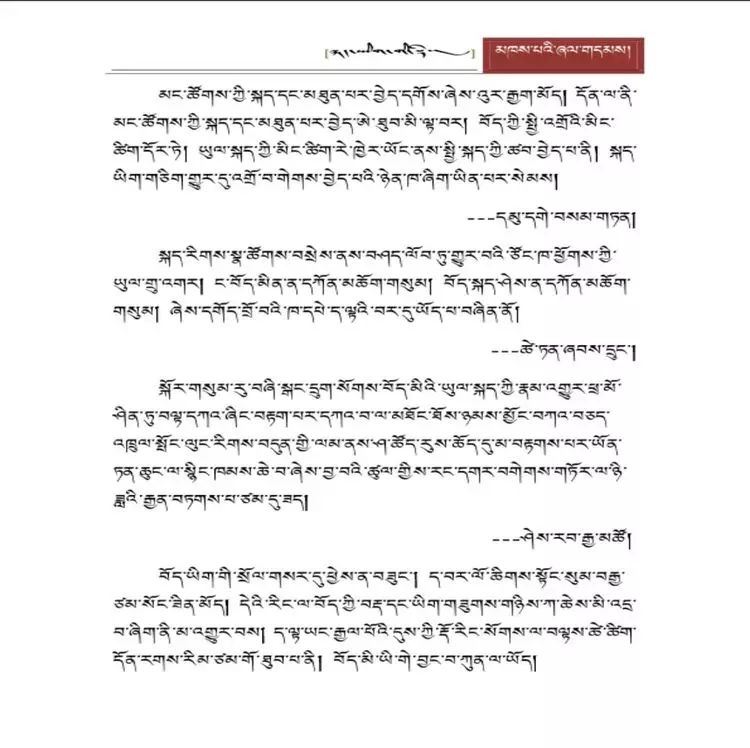 མཁས་པའི་ཞལ་གདམས།
མང་ཚོགས་ཀྱི་སྐད་དང་མཐུན་པར་བྱེད་དགོས་ཞེས་འུར་རྒྱག་མོད། དོན་ལ་ནི་
མང་ཚོགས་ཀྱི་སྐད་དང་མཐུན་པར་བྱེད་ཨེ་ཐུབ་མི་ལྟ་བར། བོད་ཀྱི་སྤྱི་འགྲོའི་མིང་
ཚིག་དོར་ཏེ། ཡུལ་སྐད་ཀྱི་མིང་ཚིག་རེ་ཁྱེར་ཡོང་ནས་སྤྱི་སྐད་ཀྱི་ཚབ་བྱེད་པ་ནི། སྐད་
ཡིག་གཅིག་གྱུར་དུ་འགྲོ་བ་གེགས་བྱེད་པའི་ཉེན་ཁ་ཞིག་ཡིན་པར་སེམས།
---དམུ་དགེ་བསམ་གཏན།
སྐད་རིགས་སྣ་ཚོགས་བསྲེས་ནས་བཤད་ལོབ་ཏུ་གྱུར་བའི་ཙོང་ཁ་ཕྱོགས་ཀྱི་
ཡུལ་གྲུ་འགར། ང་བོད་མིན་ན་དཀོན་མཆོག་གསུམ། བོད་སྐད་ཤེས་ན་དཀོན་མཆོག་
གསུམ། ཞེས་དགོད་བྲོ་བའི་ཁ་དཔེ་ད་ལྟའི་བར་དུ་ཡོད་པ་བཞིན་ནོ།
---ཚེ་ཏན་ཞབས་དྲུང་།
སྐོར་གསུམ་རུ་བཞི་སྒང་དྲུག་སོགས་བོད་མིའི་ཡུལ་སྐད་ཀྱི་རྣམ་འགྱུར་ཕྲ་མོ་
ཤིན་ཏུ་བལྟ་དཀའ་ཞིང་བརྟག་པར་དཀའ་བ་ལ་མཐོང་ཐོས་ཉམས་མྱོང་བཀའ་བཅད་
འཁྲུལ་སྤོང་ལུང་རིགས་བདུན་གྱི་ལམ་ནས་ཤ་ཚོད་རུས་ཚོད་དུ་མ་བརྟགས་པར་ཡོན་
ཏན་ཆུང་ལ་སྙིང་ཁམས་ཆེ་བ་ཞེས་བྱ་བའི་ཚུལ་གྱིས་རང་དགར་བགེགས་གཏོར་ལ་ཉི་
ཟླའི་རྒྱན་བཏགས་པ་ཙམ་དུ་ཟད།
---ཤེས་རབ་རྒྱ་མཚོ།
བོད་ཡིག་གི་སྲོལ་གསར་དུ་ཕྱེས་ན་བཟུང་། ད་བར་ལོ་ཆིགས་སྟོང་སུམ་བརྒྱ་
ཙམ་སོང་ཟིན་མོད། དེའི་རིང་ལ་བོད་ཀྱི་བརྡ་དང་ཡིག་གཟུགས་གཉིས་ཀ་ཆེས་མི་འདྲ་
བ་ཞིག་ནི་མ་འགྱུར་བས། ད་ལྟ་ཡང་རྒྱལ་པོའི་དུས་ཀྱི་རྡོ་རིང་སོགས་ལ་བལྟས་ཚེ་ཚིག་
དོན་རགས་རིམ་ཙམ་གོ་ཐུབ་པ་ནི། བོད་མི་ཡི་གེ་བྱང་བ་ཀུན་ལ་ཡོད།